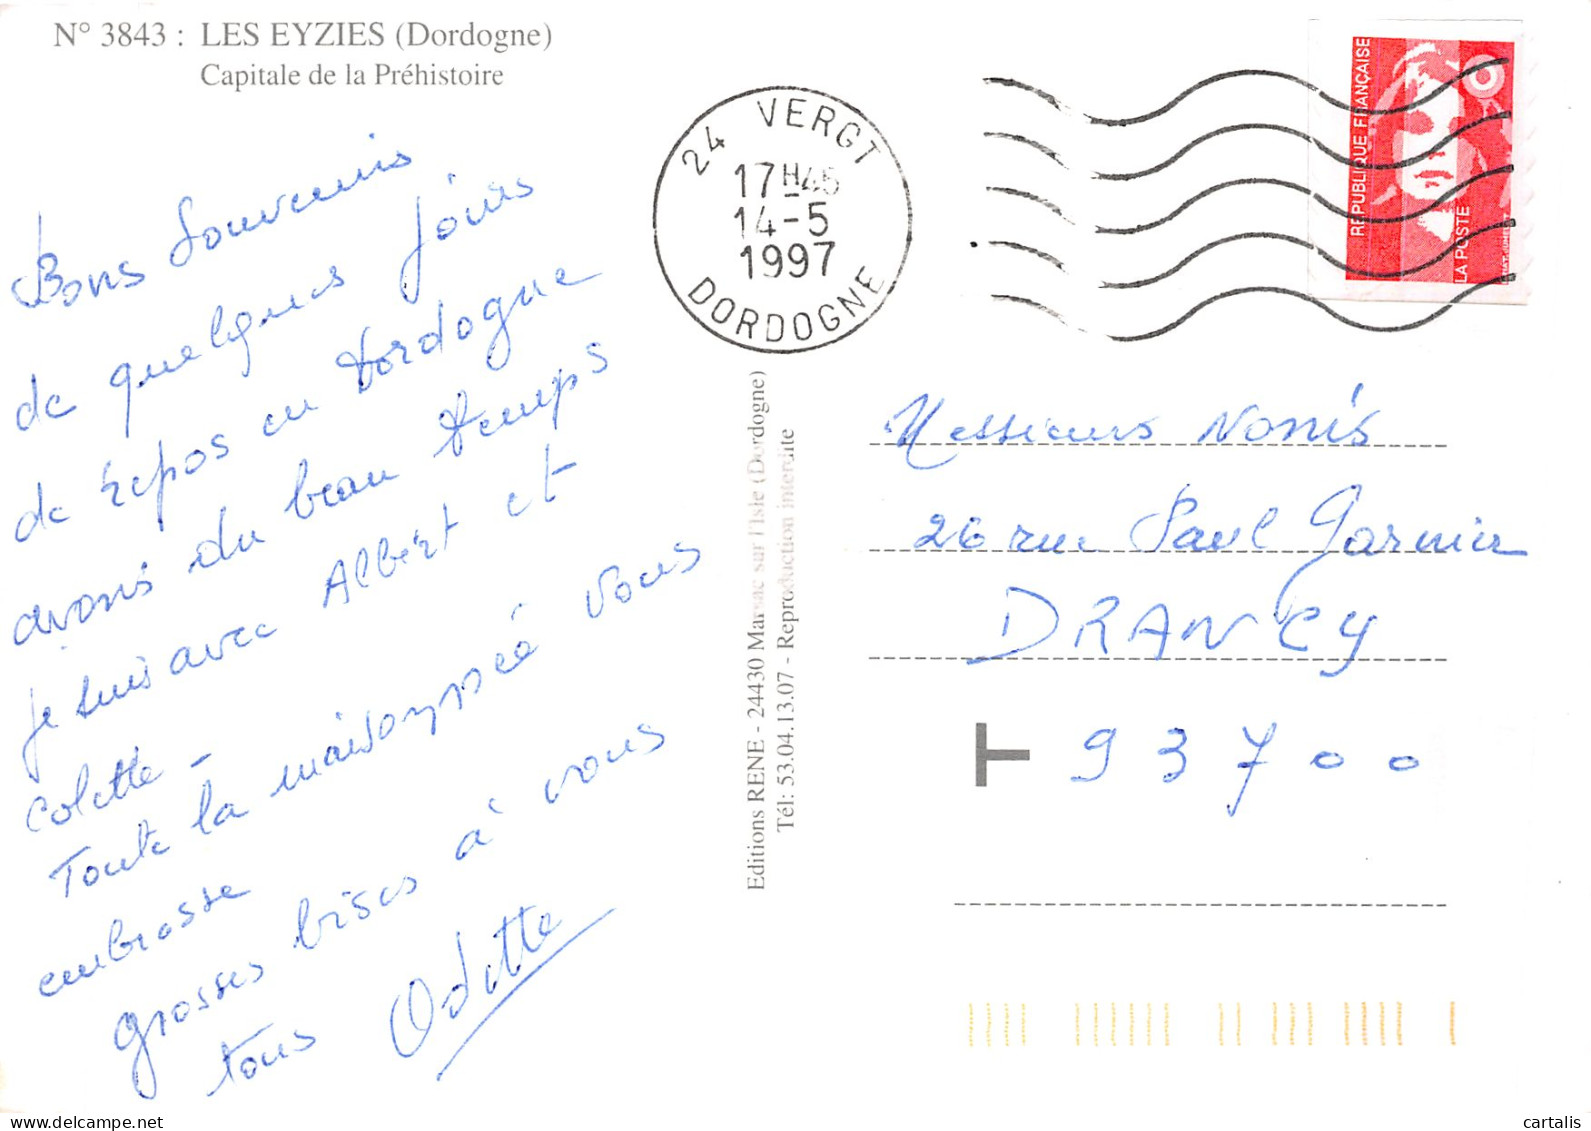 N° 3843 : LES EYZIES (Dordogne)
Capitale de la Préhistoire
Bons Souvenirs
de quelques jours
de repos en Dordogne
avons du beau temps
je suis avec Albert et
Colette -
Toute la maisonnée vous
embrasse
grosses bises à vous
tous Odette
Editions RENE - 24430 Marsac sur l'Isle (Dordogne)
Tél: 53.04.13.07 - Reproduction interdite
24 VERGT
17H45
14-5
1997
DORDOGNE
REPUBLIQUE FRANÇAISE
LA POSTE
Messieurs Nonis
26 rue Paul Garnier
DRANCY
T 93700
cartalis
www.delcampe.net